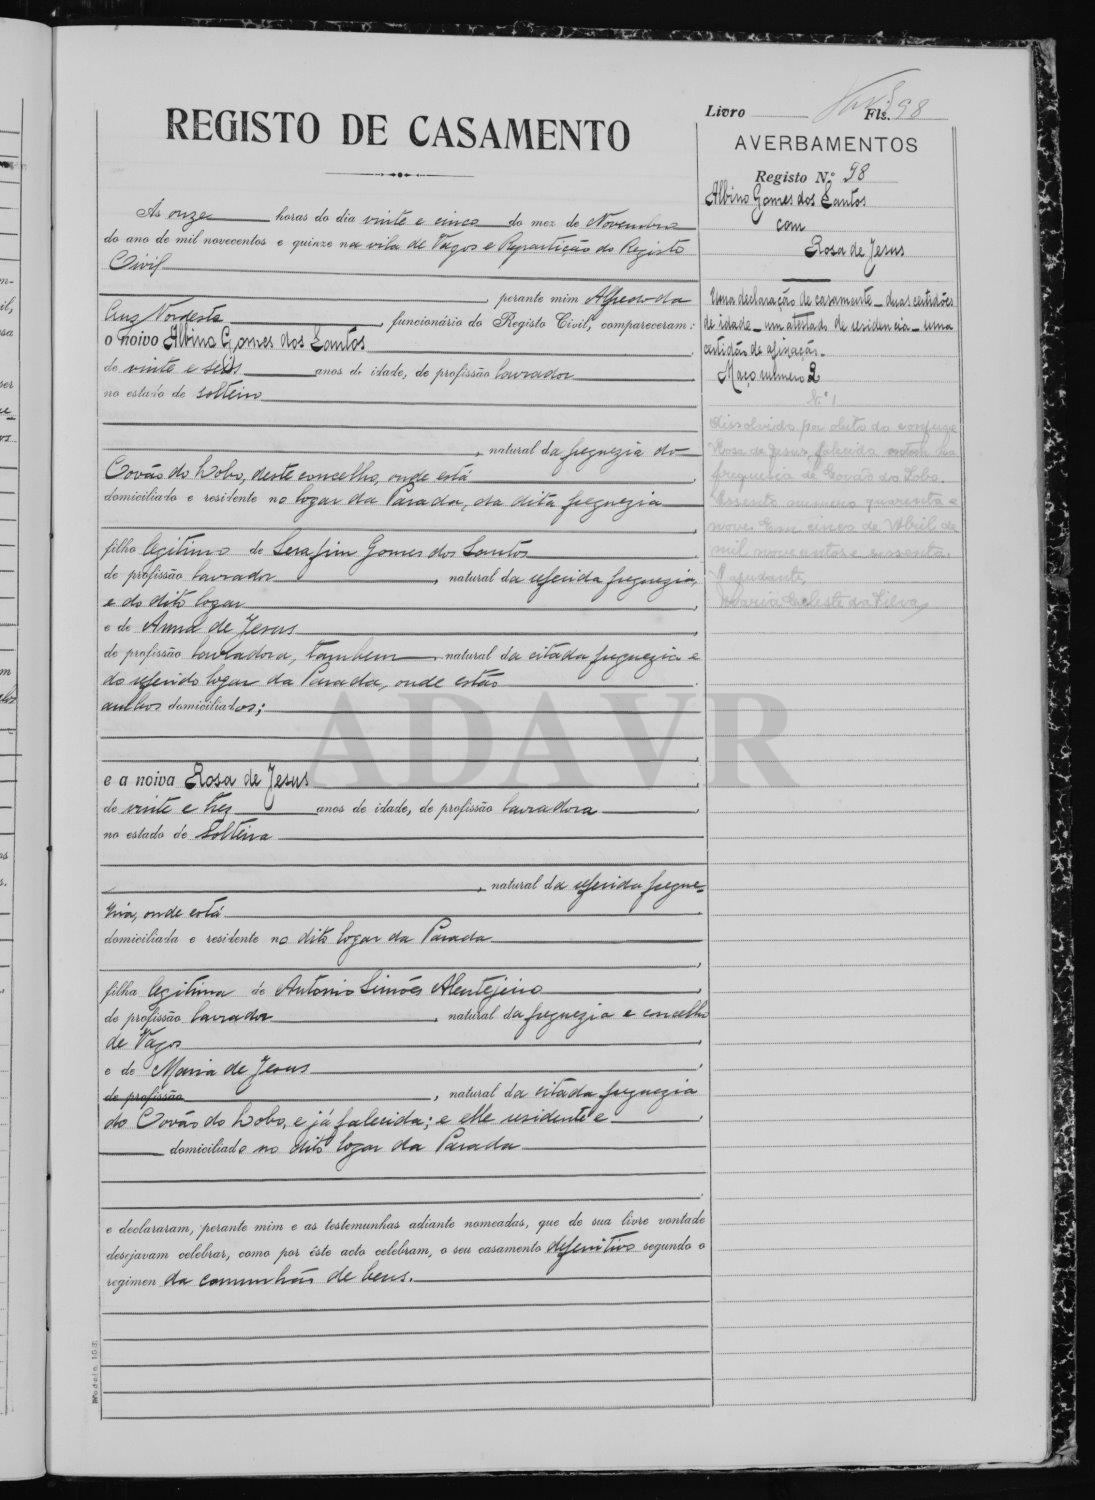 Livro Fls. 98
REGISTO DE CASAMENTO
Às onze horas do dia vinte e cinco do mez de Novembro
do ano de mil novecentos e quinze na vila de Vagos e Repartição do Registo
Civil
, perante mim Alfredo da
Cruz Nordeste, funcionário do Registo Civil, compareceram:
o noivo Albino Gomes dos Santos
de vinte e seis anos de idade, de profissão lavrador
no estado de solteiro
, natural da freguezia do
Covão do Lobo, deste concelho, onde está
domiciliado e residente no logar da Parada, da dita freguezia
filho legitimo de Serafim Gomes dos Santos
de profissão lavrador, natural da referida freguezia,
e do dito logar
e de Anna de Jesus
de profissão lavradora, tambem natural da citada freguezia e
do referido logar da Parada, onde estão
ambos domiciliados;
e a noiva Rosa de Jesus
de vinte e trez anos de idade, de profissão lavradora
no estado de solteira
, natural da referida fregue-
zia, onde está
domiciliada e residente no dito logar da Parada
filha legitima de Antonio Simões Alentejeiro
de profissão lavrador, natural da freguezia e concelho
de Vagos
e de Maria de Jesus
de profissão, natural da citada freguezia
do Covão do Lobo, e já falecida; e elle residente e
domiciliado no dito logar da Parada
e declararam, perante mim e as testemunhas adiante nomeadas, que de sua livre vontade
desejavam celebrar, como por êste acto celebram, o seu casamento definitivo segundo o
regimen da comunhão de bens.
Modelo 103
AVERBAMENTOS
Registo N.º 98
Albino Gomes dos Santos
com
Rosa de Jesus
Uma declaração de casamento – duas certidões
de idade – um atestado de residencia – uma
certidão de afixação.
Maço numero 2
N.º 1
Dissolvido por obito da conjuge
Rosa de Jesus, falecida ontem na
freguesia de Covão do Lobo.
Assento numero quarenta e
nove. Em cinco de Abril de
mil novecentos e sessenta.
O ajudante,
Maria Celeste da Silva
ADAVR